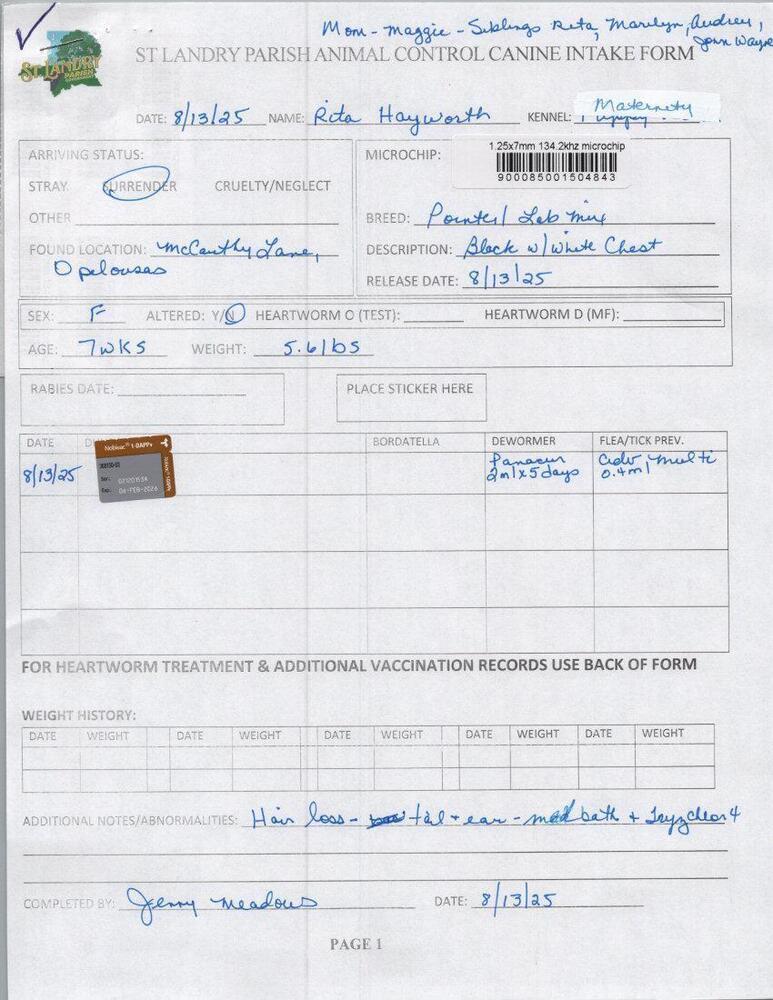 Mom - Maggie - Siblings Rita, Marilyn, Audrey,
John Wayne
ST LANDRY
PARISH
ST LANDRY PARISH ANIMAL CONTROL CANINE INTAKE FORM
DATE: 8/13/25 NAME: Rita Hayworth KENNEL: Maternity
ARRIVING STATUS:
STRAY SURRENDER CRUELTY/NEGLECT
OTHER
FOUND LOCATION: McCarthy Lane,
Opelousas
MICROCHIP: 1.25x7mm 134.2khz microchip
900085001504843
BREED: Pointer/ Lab mix
DESCRIPTION: Black w/ white Chest
RELEASE DATE: 8/13/25
SEX: F ALTERED: Y/N HEARTWORM O (TEST): HEARTWORM D (MF):
AGE: 7wks WEIGHT: 5.6lbs
RABIES DATE: PLACE STICKER HERE
DATE D BORDATELLA DEWORMER FLEA/TICK PREV.
8/13/25 Nobivac 1-DAPPv Panacur Adv multi
2ml x 5 days 0.4ml
02120153A
04-FEB-2026
FOR HEARTWORM TREATMENT & ADDITIONAL VACCINATION RECORDS USE BACK OF FORM
WEIGHT HISTORY:
DATE WEIGHT DATE WEIGHT DATE WEIGHT DATE WEIGHT DATE WEIGHT
ADDITIONAL NOTES/ABNORMALITIES: Hair loss - tail + ear - med bath +
COMPLETED BY: Jenny Meadows DATE: 8/13/25
PAGE 1